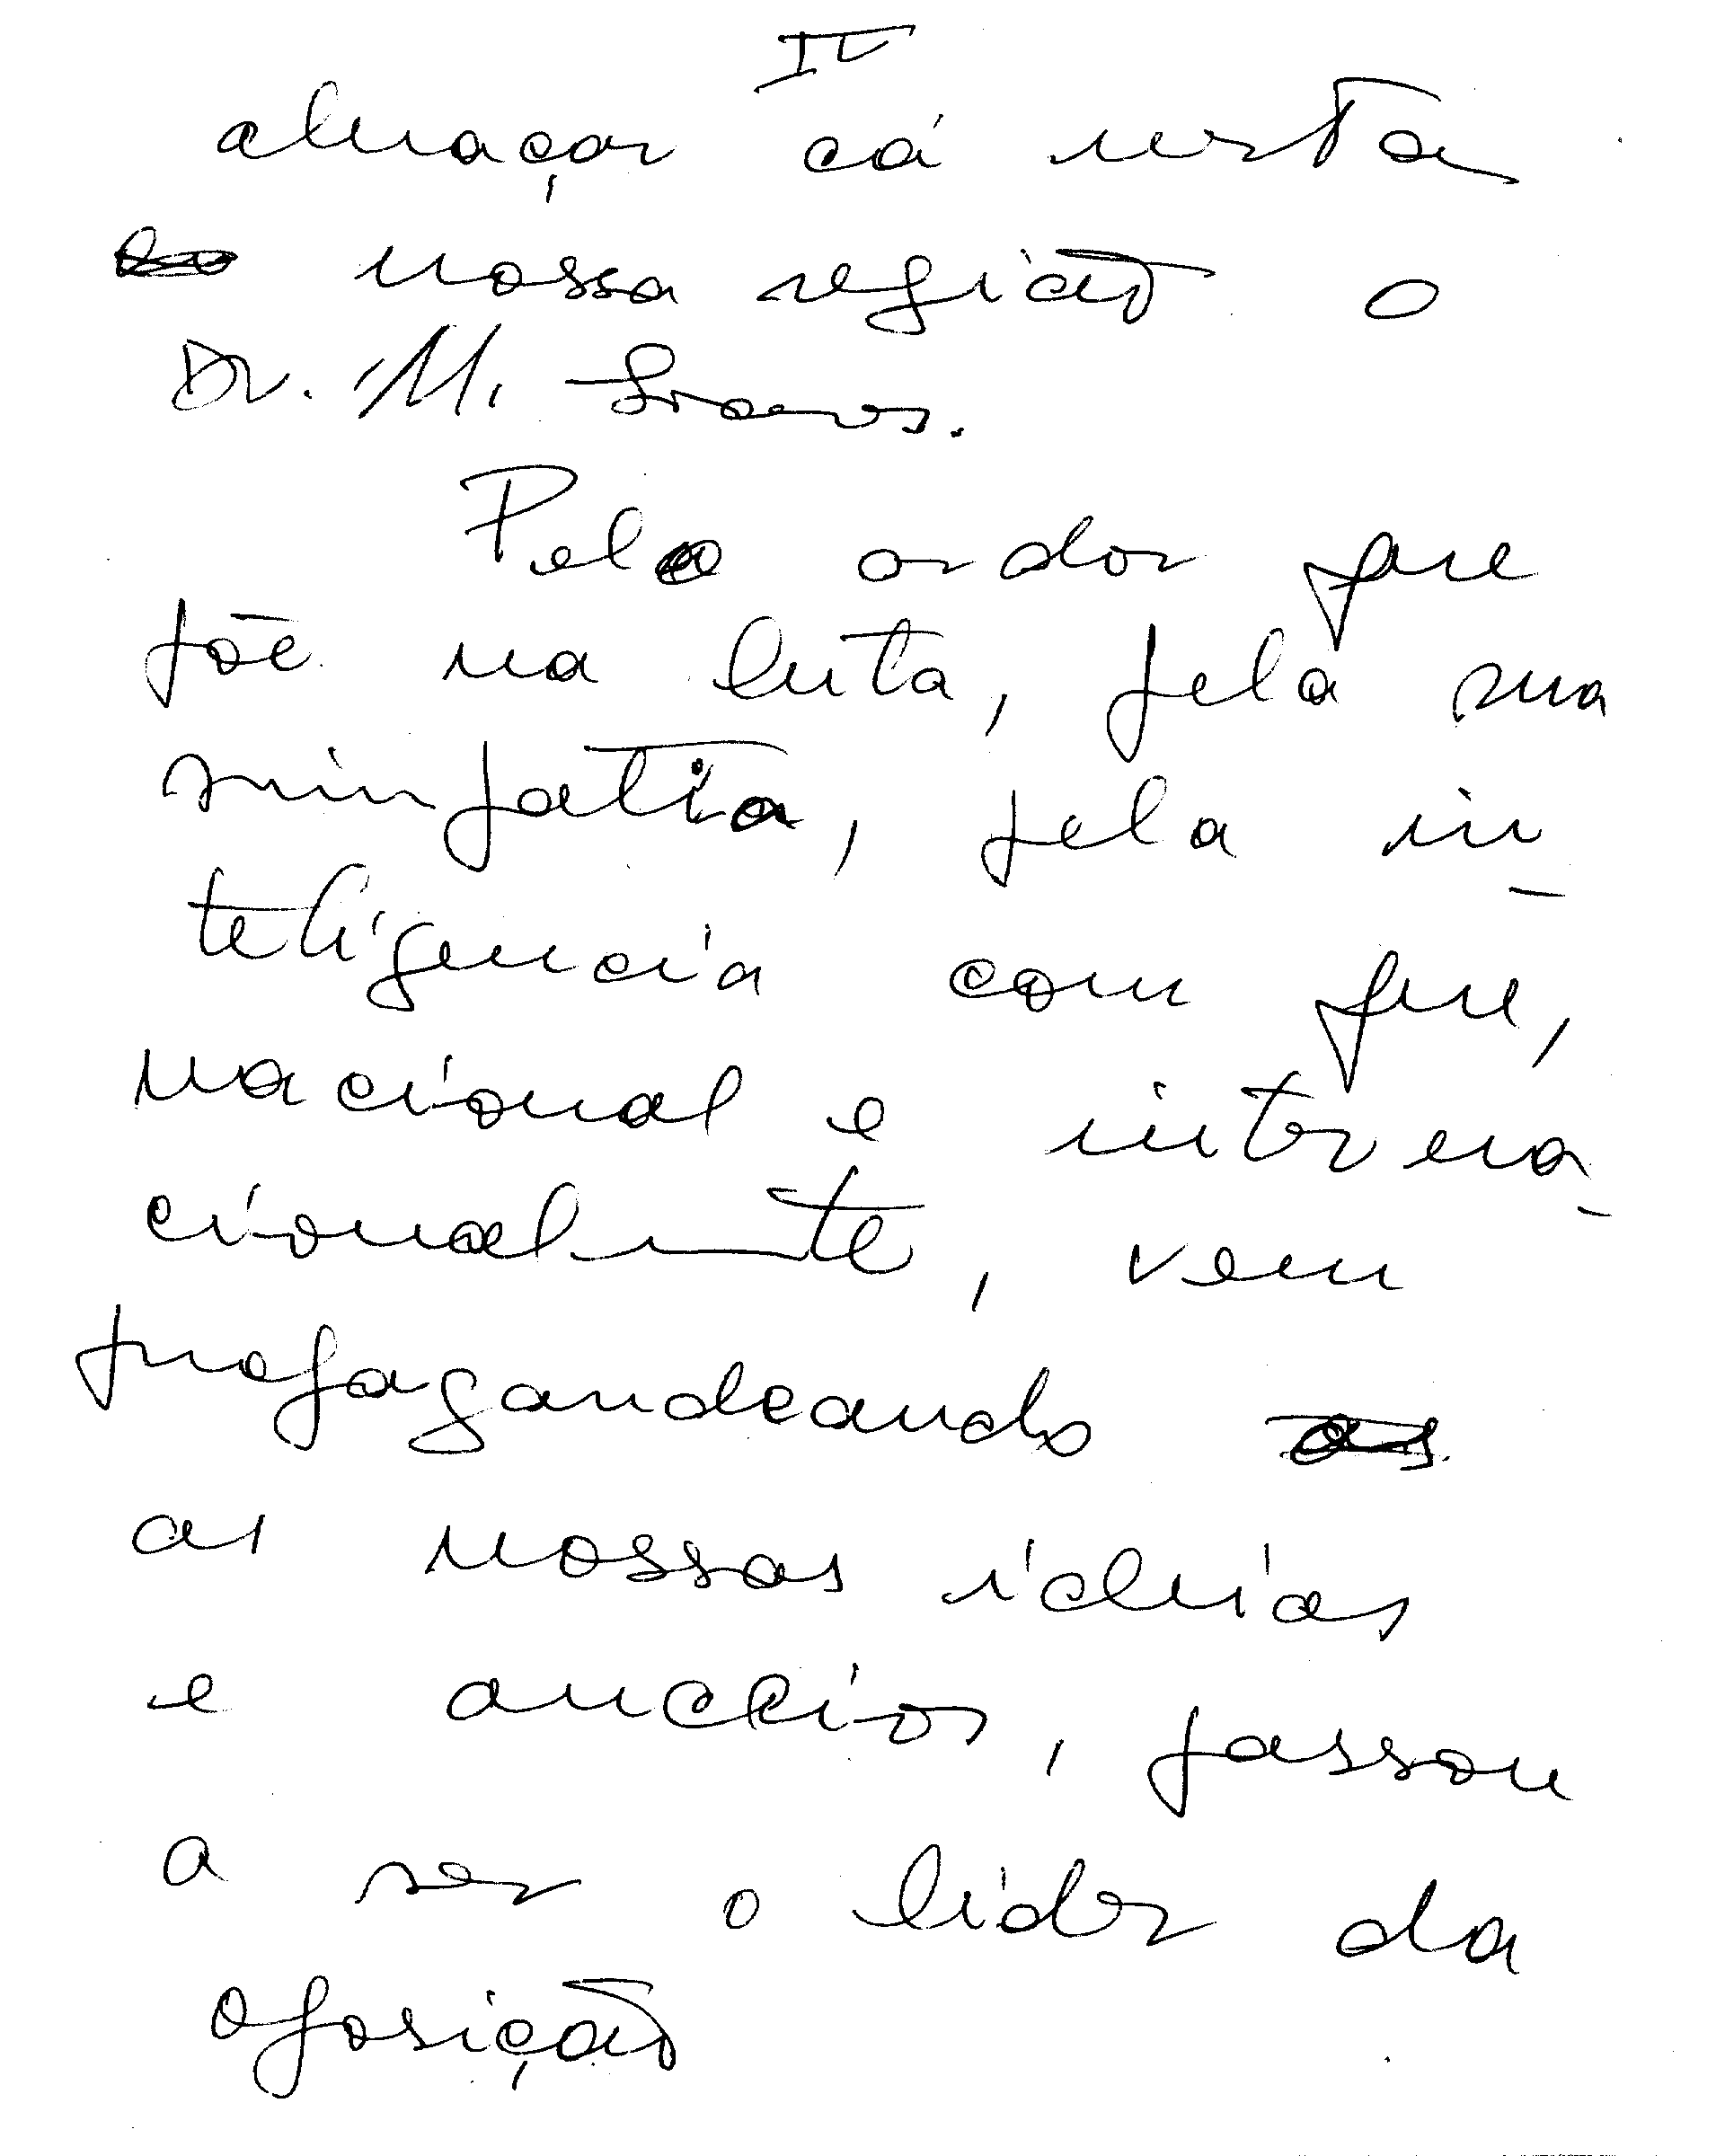 IV
abraçar cá nesta
nossa região o
Dr. M. Soares.
Pelo ardor que
põe na luta, pela sua
simpatia, pela in-
teligencia com que,
nacional e interna-
cionalmente, vem
propagandeando as
as nossas ideias
e anceios, passou
a ser o lider da
oposição